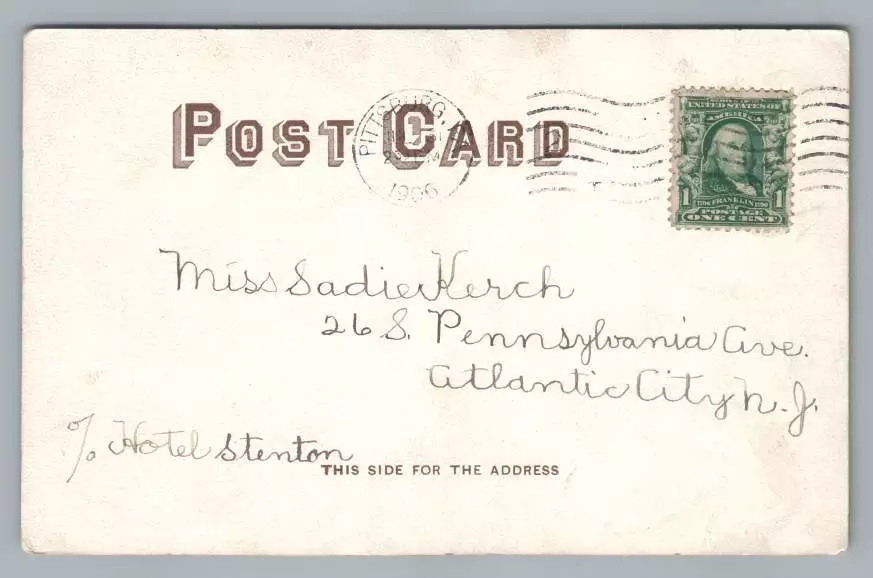 POST CARD
PITTSBURG,
1906
UNITED STATES OF
AMERICA
1 1
FRANKLIN
POSTAGE
ONE CENT
Miss Sadie Kerch
26 S. Pennsylvania Ave.
Atlantic City N. J.
c/o Hotel Stenton
THIS SIDE FOR THE ADDRESS